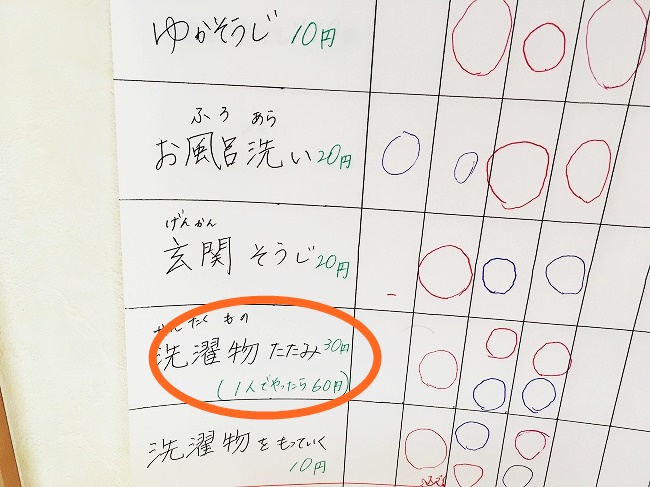 ゆかそうじ 10円
ふろ あら
お風呂洗い20円
げんかん
玄関そうじ20円
せんたくもの
洗濯物たたみ30円
(1人でやったら60円)
洗濯物をもっていく
10円